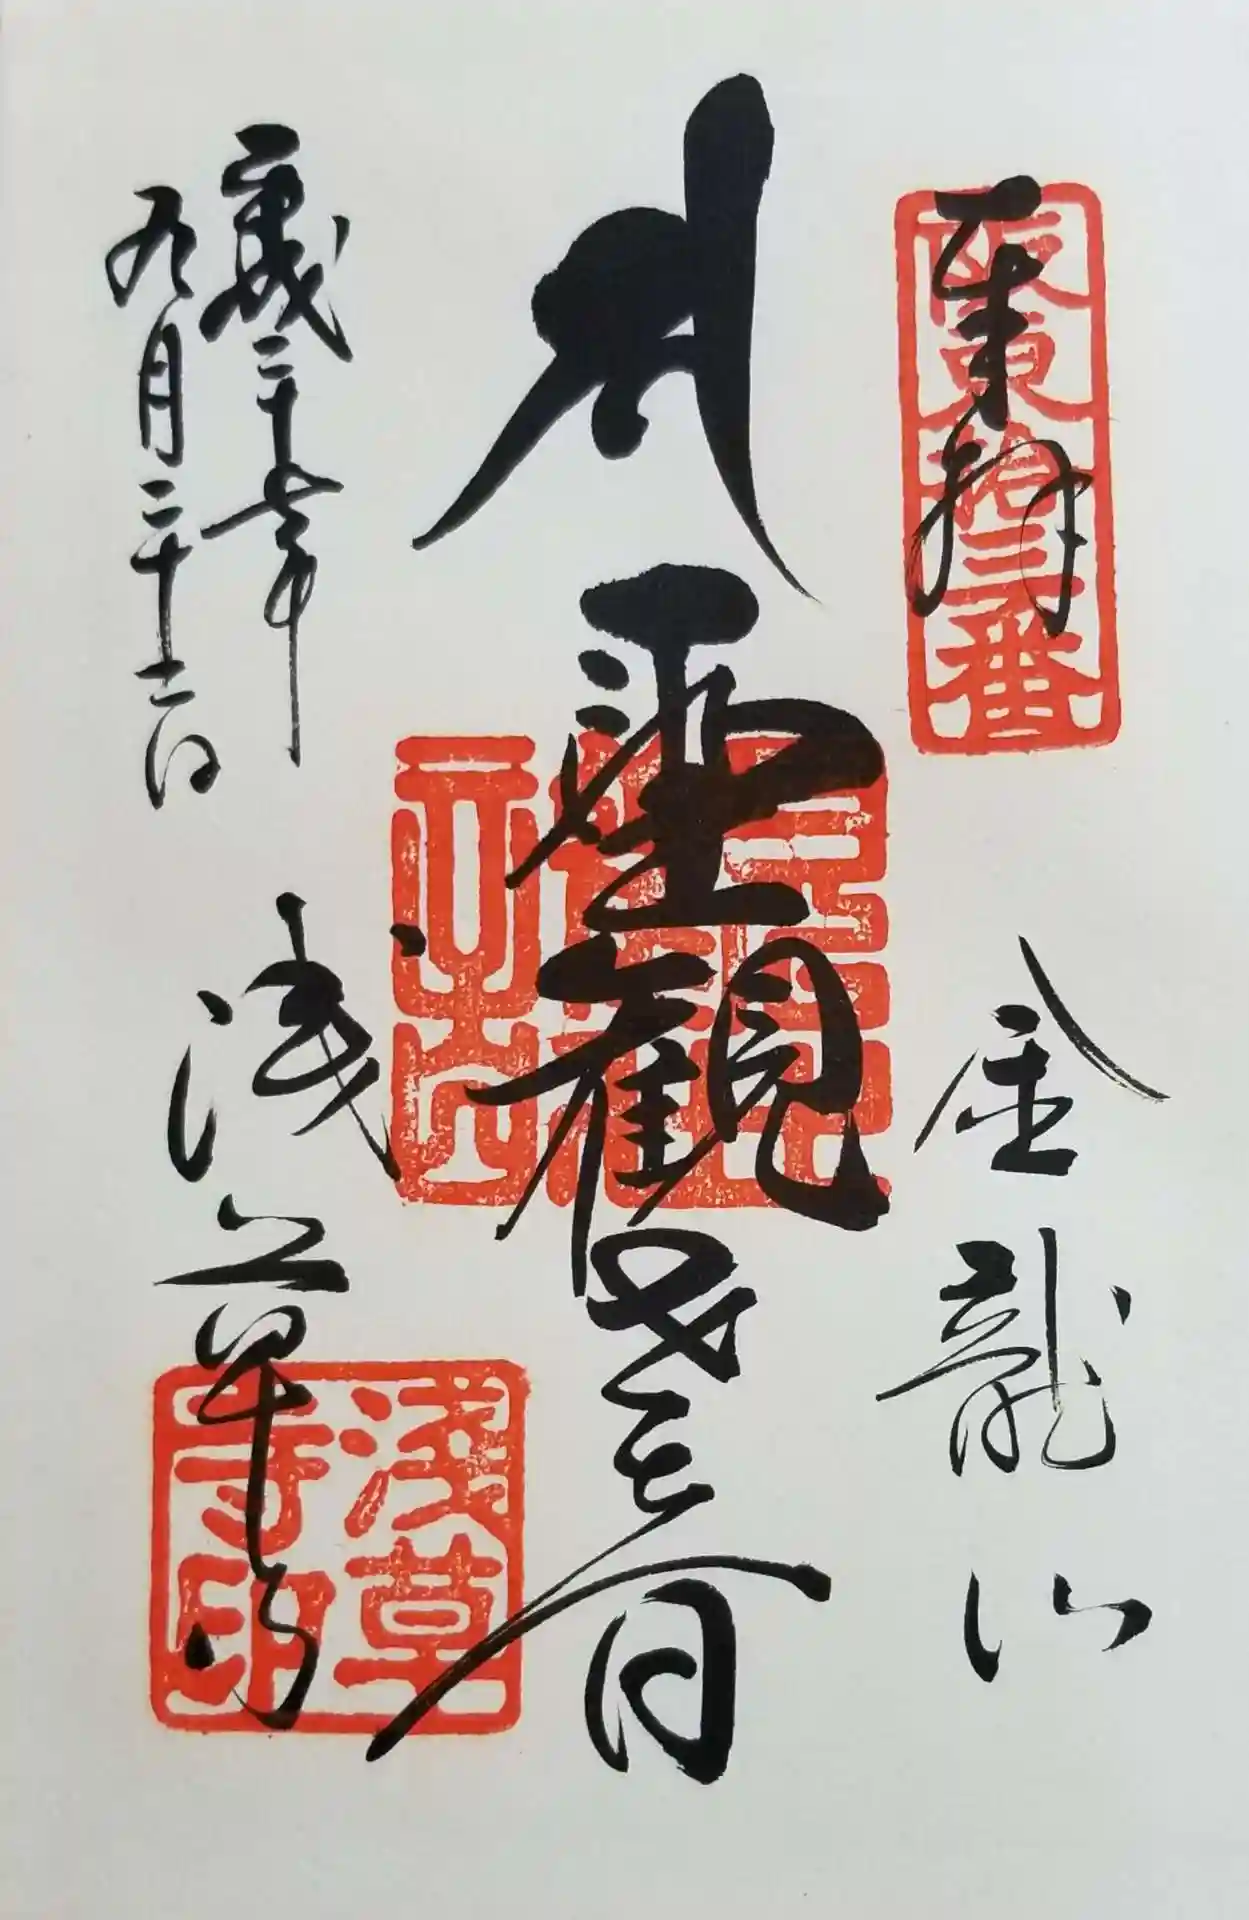 奉拝
坂東拾三番
金龍山
聖観世音
平成二十七年
九月二十二日
浅草寺
淺草寺印